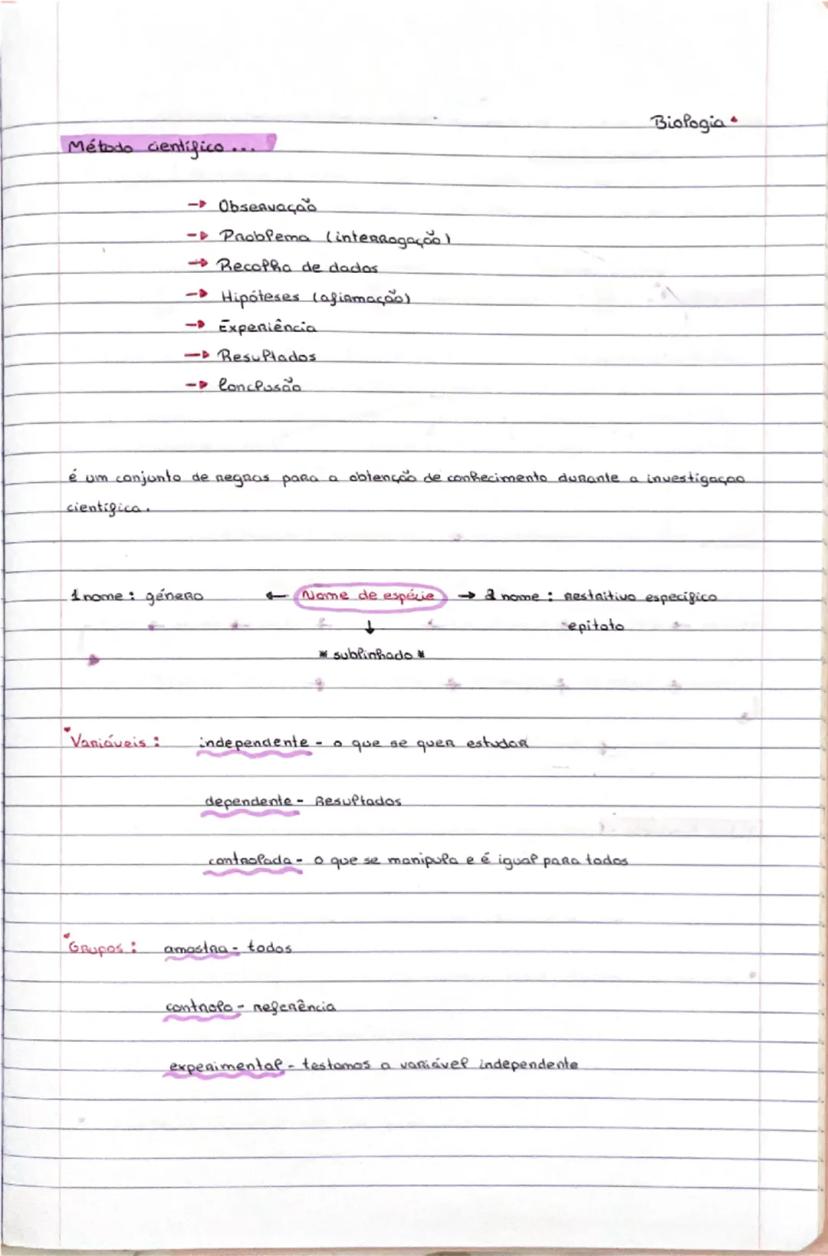 Biologia
Método científico...
→ Observação
→ Problema (interrogação)
→ Recolha de dados
→ Hipóteses (afirmação)
→ Experiência
→ Resultados
→ Conclusão
é um conjunto de regras para a obtenção de conhecimento durante a investigação
científica.
1 nome: género ← Nome de espécie → 2 nome: restritivo específico
↓ epitoto
* sublinhado *
Variáveis: independente - o que se quer estudar
dependente - Resultados
controlada - o que se manipula e é igual para todos
Grupos: amostra - todos
controlo - referência
experimental - testamos a variável independente